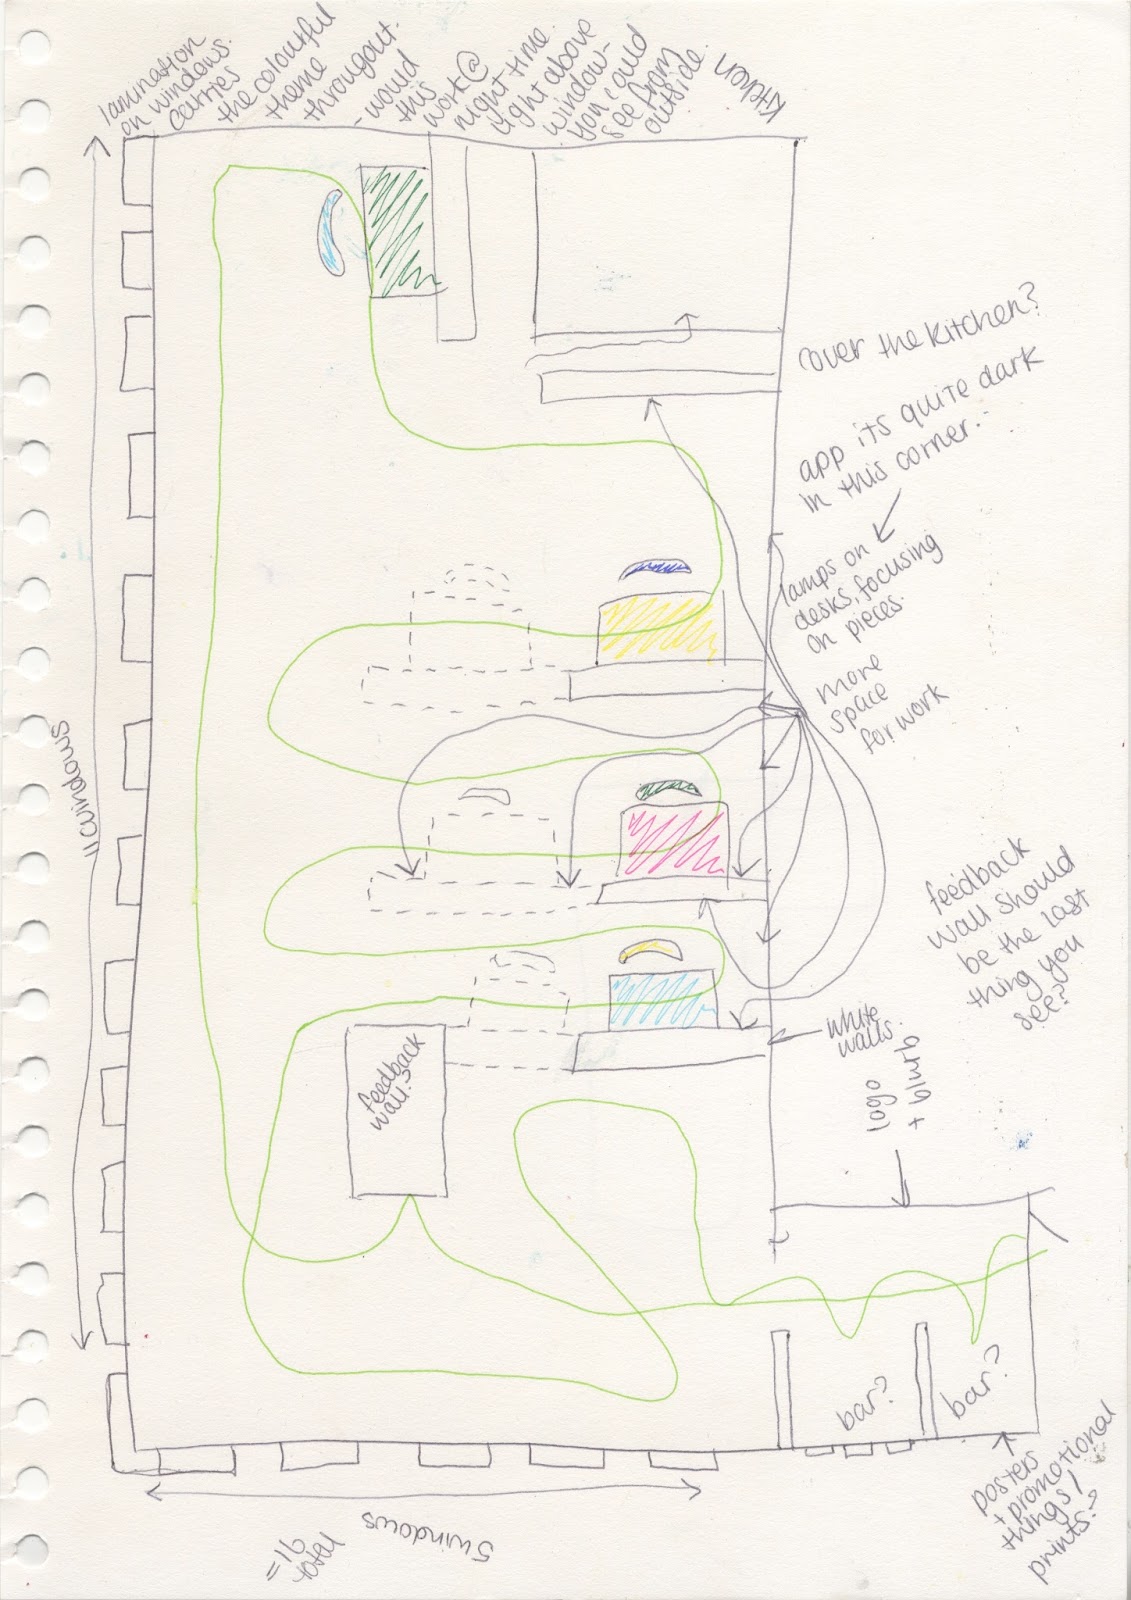 lamination
on windows.
carries
the colourful
theme
througout.
- would
this
work @
night time.
light above
window -
you could
see from
outside.
kitchen
cover the kitchen?
app its quite dark
in this corner. -
lamps on
desks, focusing
on pieces.
more
space
for work
11 windows
feedback
wall should
be the last
thing you
see?
white
walls.
logo
+ blurb
feedback
wall?
bar?
bar?
posters
+ promotional
things /
prints?
5 windows
= 16
total